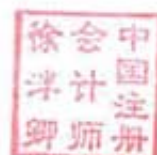 中国注册
会计师
徐卿